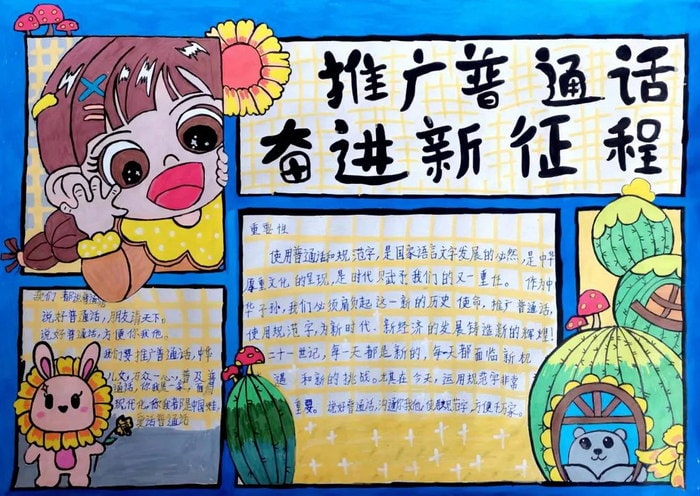 推广普通话
奋进新征程
重要性
使用普通话和规范字,是国家语言文字发展的必然,是中华
文化的呈现,是时代赋予我们的又一重任。作为中
华子孙,我们必须肩负起这一新的历史使命,推广普通话,
使用规范字,为新时代、新经济的发展铸造新的辉煌!
二十一世纪,每一天都是新的,每一天都面临新机
遇和新的挑战。尤其在今天,运用规范字非常
重要。说好普通话,沟通你我他,使用规范字,方便千万家。
我们都说普通话
说好普通话,朋友满天下。
说好普通话,方便你我他。
我们要推广普通话,中华
儿女,万众一心,普及
普通话,你我是一家,
现代化,你我都是中国娃。
爱说普通话